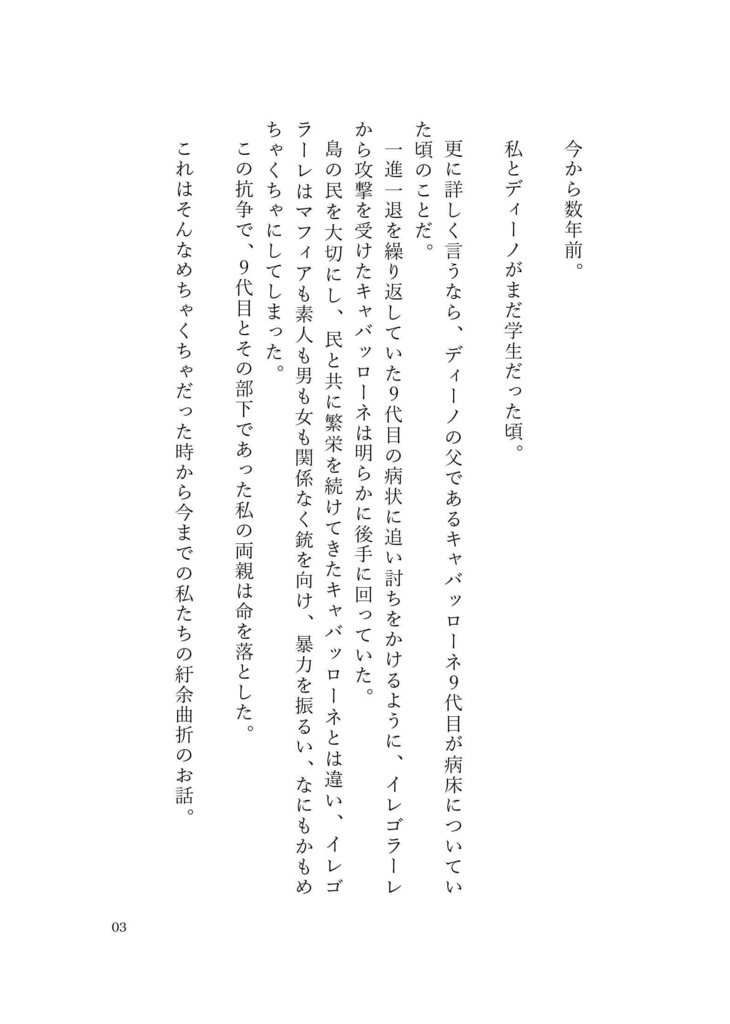 今から数年前。
私とディーノがまだ学生だった頃。
更に詳しく言うなら、ディーノの父であるキャバッローネ9代目が病床についてい
た頃のことだ。
一進一退を繰り返していた9代目の病状に追い討ちをかけるように、イレゴラーレ
から攻撃を受けたキャバッローネは明らかに後手に回っていた。
島の民を大切にし、民と共に繁栄を続けてきたキャバッローネとは違い、イレゴ
ラーレはマフィアも素人も男も女も関係なく銃を向け、暴力を振るい、なにもかもめ
ちゃくちゃにしてしまった。
この抗争で、9代目とその部下であった私の両親は命を落とした。
これはそんなめちゃくちゃだった時から今までの私たちの紆余曲折のお話。
03